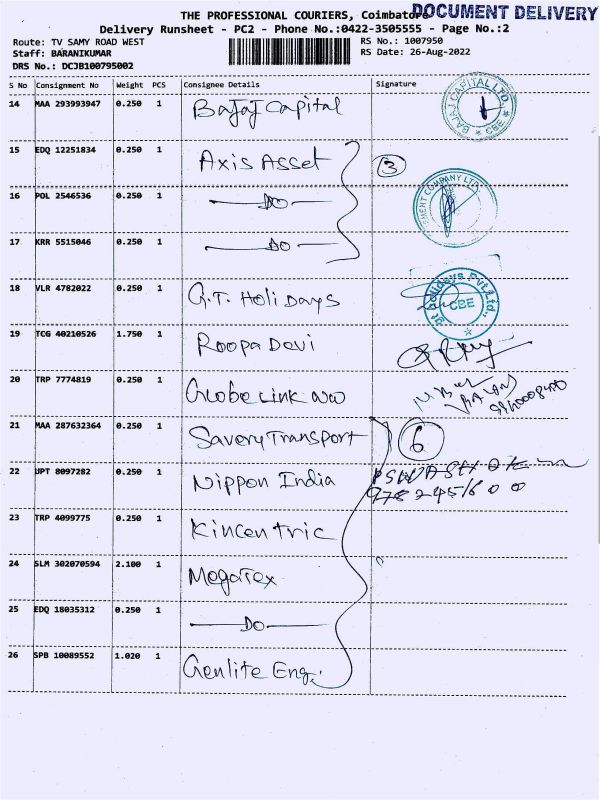 THE PROFESSIONAL COURIERS, Coimbatore
DOCUMENT DELIVERY
Delivery Runsheet - PC2 - Phone No.:0422-3505555 - Page No.:2
Route: TV SAMY ROAD WEST
RS No.: 1007950
Staff: BARANIKUMAR
RS Date: 26-Aug-2022
DRS No.: DCJB100795002
S No Consignment No Weight PCS Consignee Details Signature
14 MAA 293993947 0.250 1 Bajaj Capital
BAJAJ CAPITAL LTD. CBE
15 EDQ 12251834 0.250 1 Axis Asset 3
16 POL 2546536 0.250 1 DO
17 KRR 5515046 0.250 1 DO
18 VLR 4782022 0.250 1 G.T. Holi Days
gt holidays Pvt.Ltd., CBE
19 TCG 40210526 1.750 1 Roopa Devi
20 TRP 7774819 0.250 1 Globe Link
21 MAA 287632364 0.250 1 Savery Transport 6
22 UPT 8097282 0.250 1 Nippon India
23 TRP 4099775 0.250 1 Kincentric
24 SLM 302070594 2.100 1 Megatex
25 EDQ 18035312 0.250 1 DO
26 SPB 10089552 1.020 1 Genlite Eng.